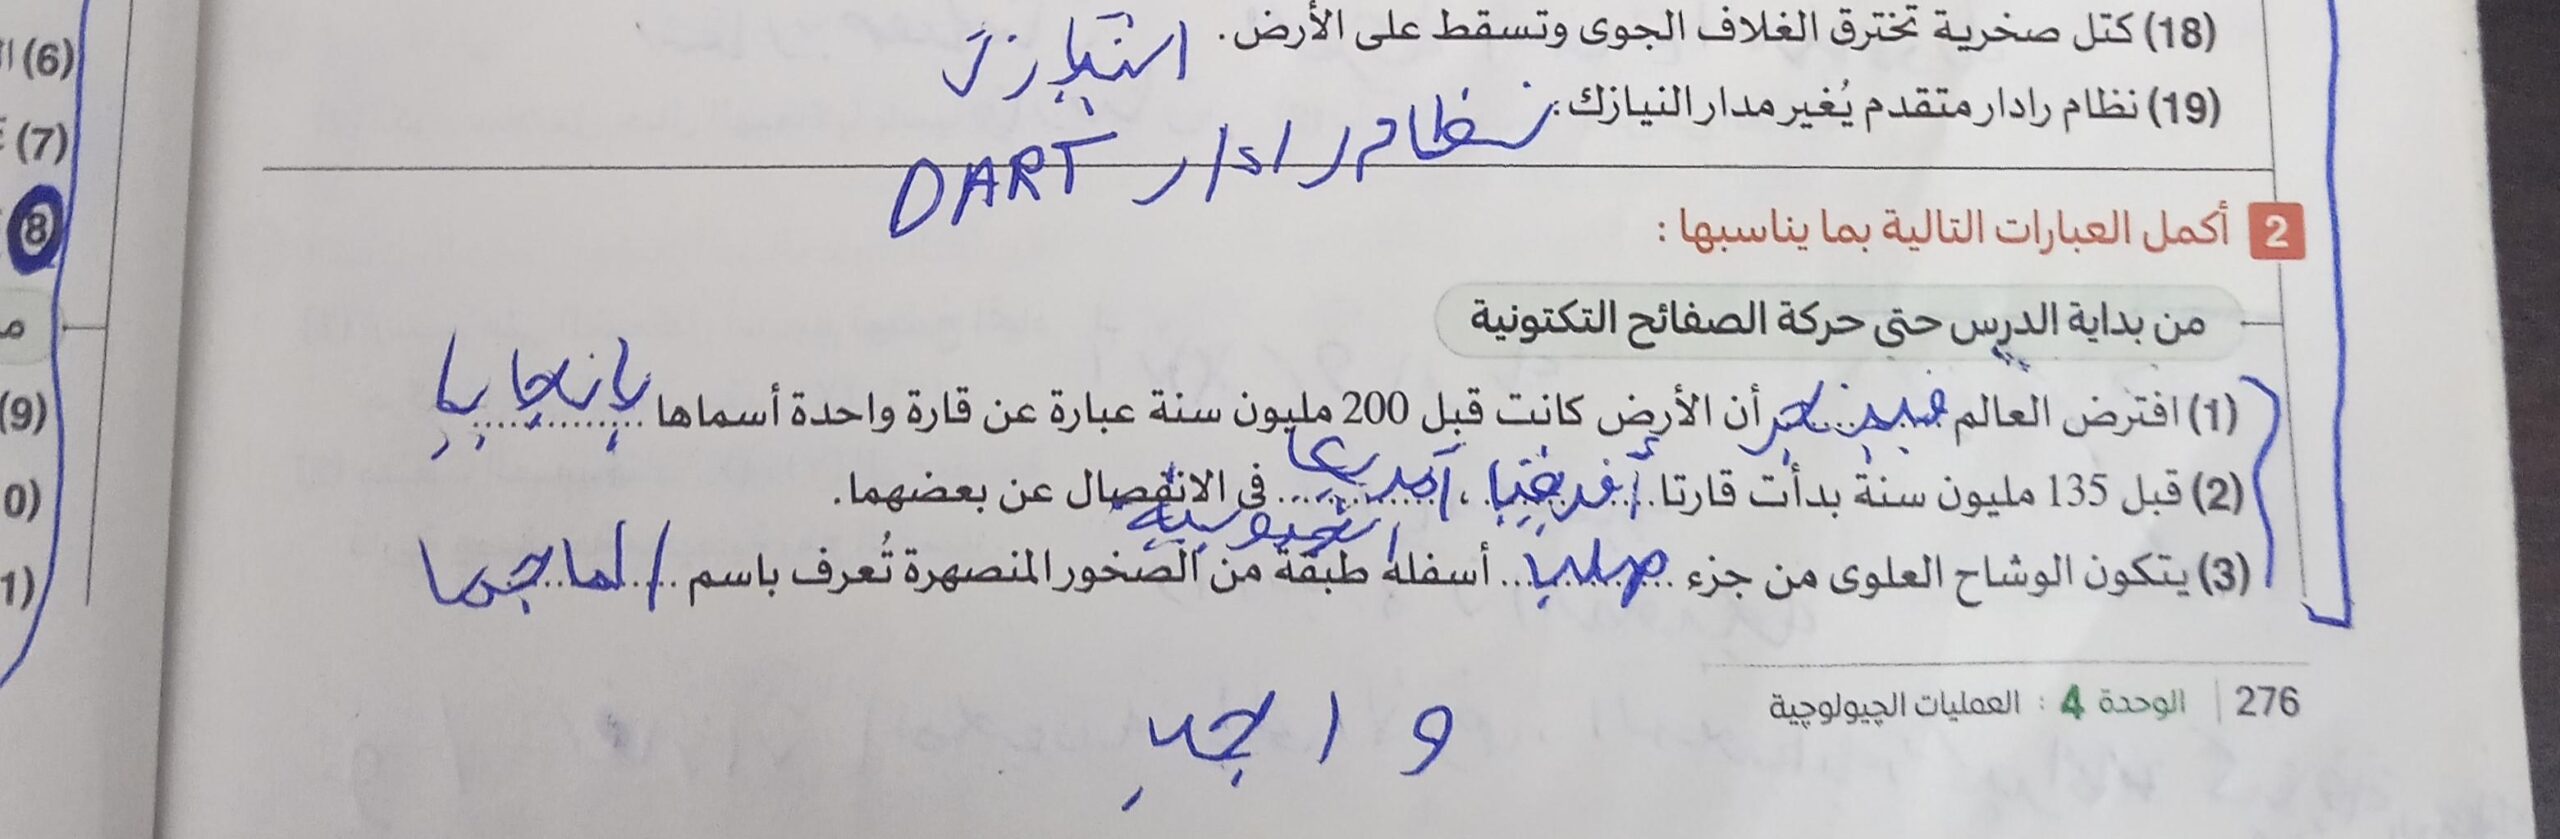 (18) كتل صخرية تخترق الغلاف الجوى وتسقط على الأرض. النيازك
(19) نظام رادار متقدم يُغير مدار النيازك. نظام رادار
DART
2 أكمل العبارات التالية بما يناسبها :
من بداية الدرس حتى حركة الصفائح التكتونية
(1) افترض العالم ...... أن الأرض كانت قبل 200 مليون سنة عبارة عن قارة واحدة أسماها بانجايا
(2) قبل 135 مليون سنة بدأت قارتا أفريقيا ، أمريكا الجنوبية فى الانفصال عن بعضهما.
(3) يتكون الوشاح العلوى من جزء صلب أسفله طبقة من الصخور المنصهرة تُعرف باسم الماجما
276 | الوحدة 4 : العمليات الچيولوچية
واجب
(6)
(7)
8
(9)
0)
1)